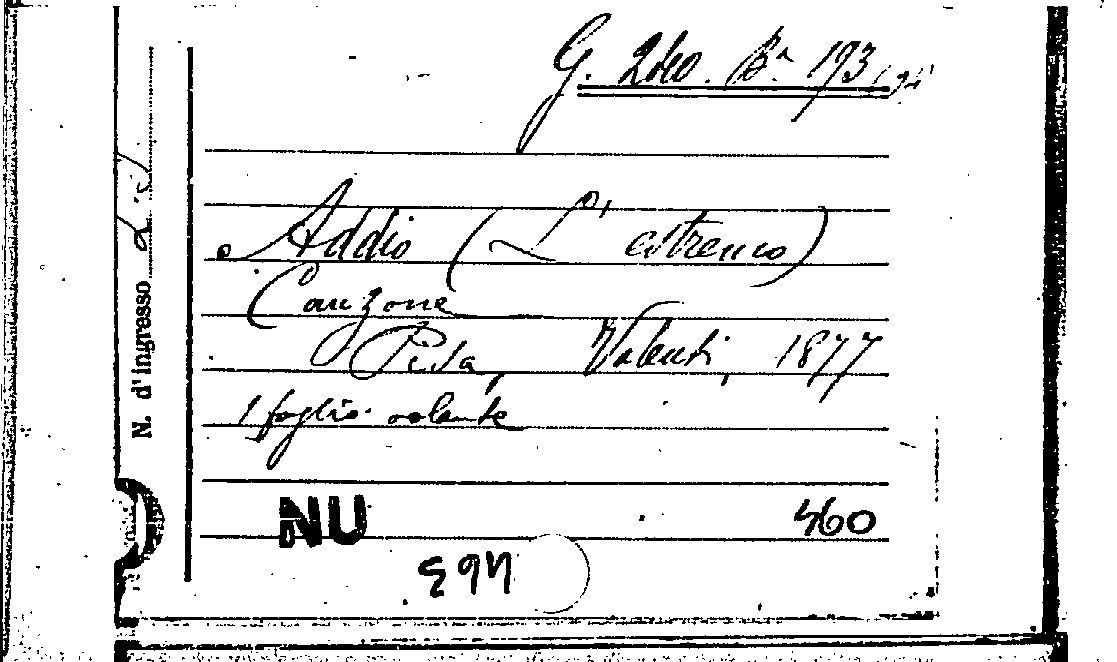 G. 240. Bª 173
Addio (L' estremo)
Canzone
Pisa, Valenti, 1877
1 foglio volante
NU 460
N. d'ingresso